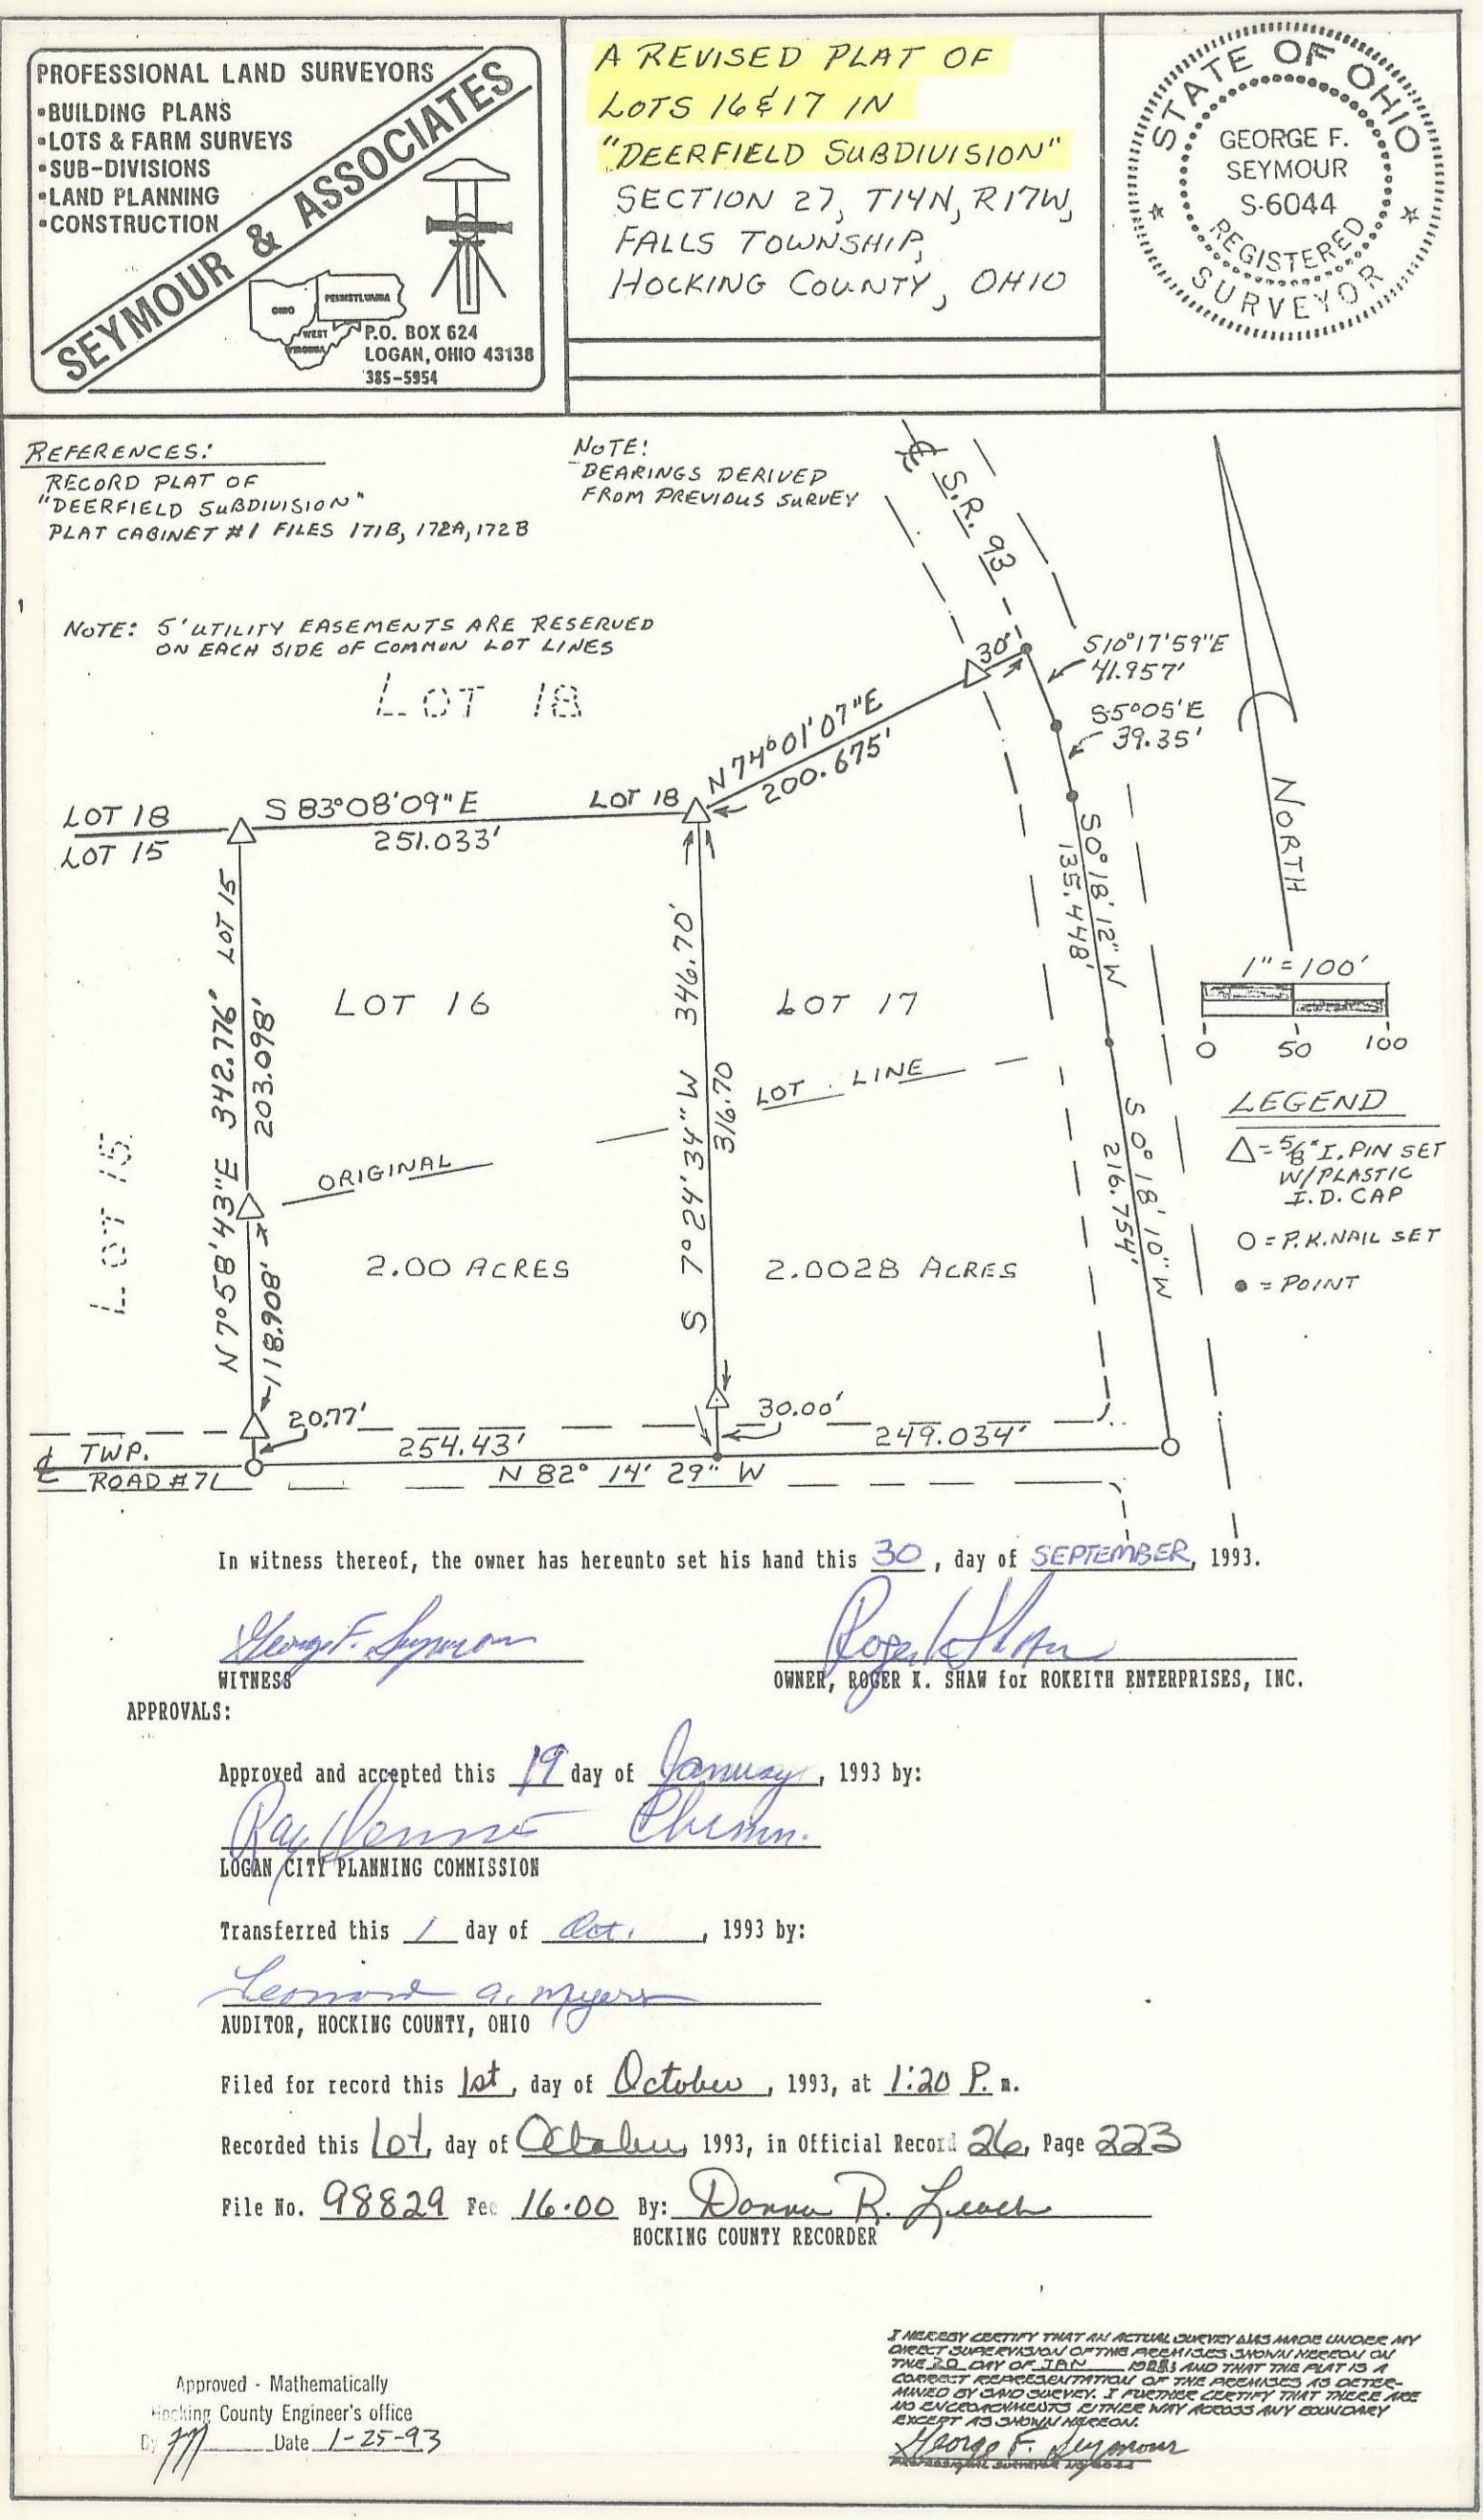 PROFESSIONAL LAND SURVEYORS
•BUILDING PLANS
•LOTS & FARM SURVEYS
•SUB-DIVISIONS
•LAND PLANNING
•CONSTRUCTION
SEYMOUR & ASSOCIATES
OHIO
PENNSYLVANIA
WEST
VIRGINIA
P.O. BOX 624
LOGAN, OHIO 43138
385-5954
A REVISED PLAT OF
LOTS 16 & 17 IN
"DEERFIELD SUBDIVISION"
SECTION 27, T14N, R17W,
FALLS TOWNSHIP,
HOCKING COUNTY, OHIO
STATE OF OHIO
GEORGE F.
SEYMOUR
S-6044
REGISTERED
SURVEYOR
REFERENCES:
RECORD PLAT OF
"DEERFIELD SUBDIVISION"
PLAT CABINET #1 FILES 171B, 172A, 172B
NOTE:
BEARINGS DERIVED
FROM PREVIOUS SURVEY
℄ S.R. 93
NOTE: 5' UTILITY EASEMENTS ARE RESERVED
ON EACH SIDE OF COMMON LOT LINES
LOT 18
30'
S10°17'59"E
41.957'
S5°05'E
39.35'
N74°01'07"E
200.675'
LOT 18
LOT 15
S 83°08'09"E
251.033'
LOT 18
S0°18'12"W
135.448'
NORTH
LOT 15
N 7°58'43"E 342.776'
203.098'
LOT 16
S 7°24'34"W 346.70'
316.70
LOT 17
1"=100'
0 50 100
LOT LINE
ORIGINAL
LOT 15
118.908'
2.00 ACRES
2.0028 ACRES
S 0°18'10"W
216.754'
LEGEND
△ = 5/8" I. PIN SET
W/PLASTIC
I.D. CAP
O = P.K. NAIL SET
● = POINT
20.77'
30.00'
254.43'
249.034'
℄ TWP.
ROAD #71
N 82° 14' 29" W
In witness thereof, the owner has hereunto set his hand this 30, day of SEPTEMBER, 1993.
George F. Seymour
WITNESS
Roger K Shaw
OWNER, ROGER K. SHAW for ROKEITH ENTERPRISES, INC.
APPROVALS:
Approved and accepted this 19 day of January, 1993 by:
Ray Chrmn.
LOGAN CITY PLANNING COMMISSION
Transferred this 1 day of Oct., 1993 by:
Leonard A. Myers
AUDITOR, HOCKING COUNTY, OHIO
Filed for record this 1st, day of October, 1993, at 1:20 P.m.
Recorded this 1st, day of October, 1993, in Official Record 26, Page 223
File No. 98829 Fee 16.00 By: Donna R. Leach
HOCKING COUNTY RECORDER
Approved - Mathematically
Hocking County Engineer's office
By Date 1-25-93
I HEREBY CERTIFY THAT AN ACTUAL SURVEY WAS MADE UNDER MY
DIRECT SUPERVISION OF THE PREMISES SHOWN HEREON ON
THE 20 DAY OF JAN AND THAT THE PLAT IS A
CORRECT REPRESENTATION OF THE PREMISES AS DETER-
MINED BY SAID SURVEY. I FURTHER CERTIFY THAT THERE ARE
NO ENCROACHMENTS EITHER WAY ACROSS ANY BOUNDARY
EXCEPT AS SHOWN HEREON.
George F. Seymour
PROFESSIONAL SURVEYOR NO. 6044